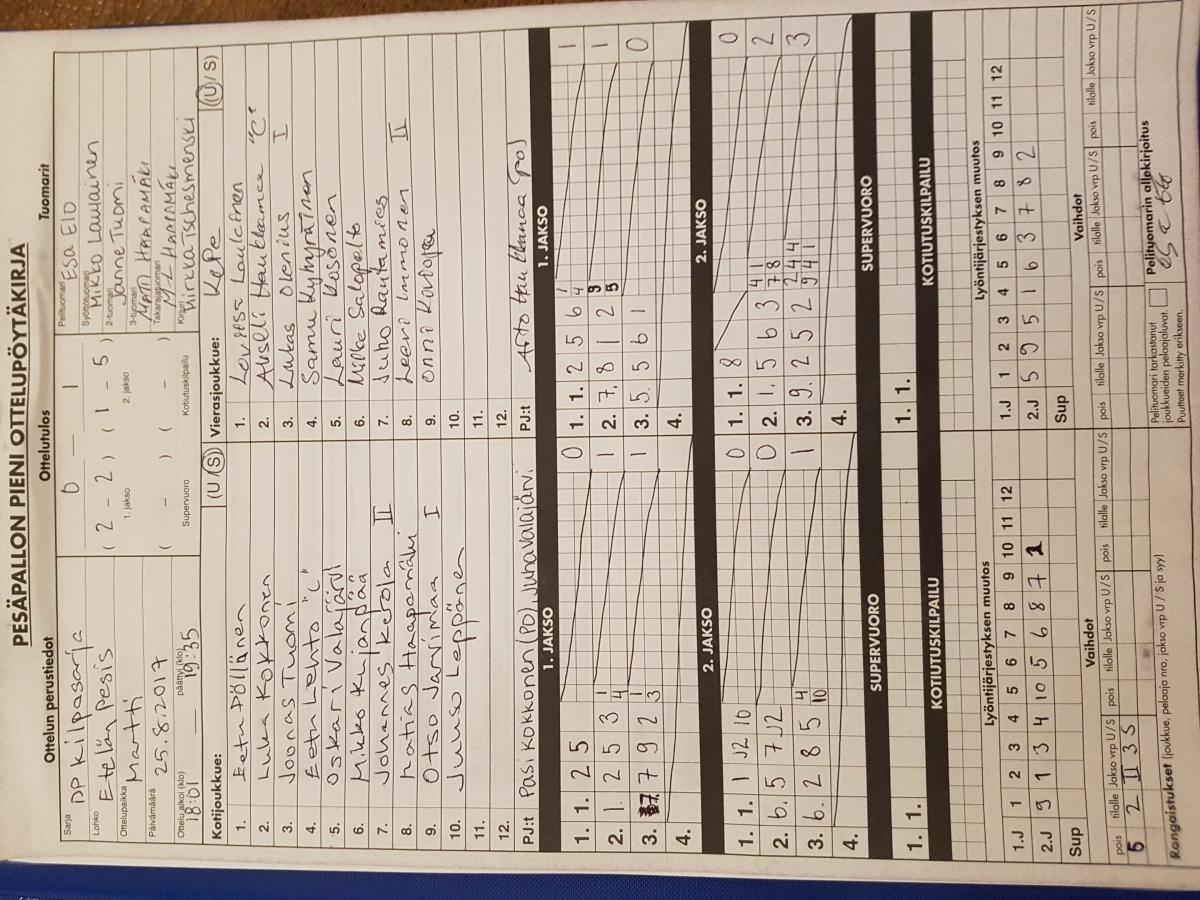 PESÄPALLON PIENI OTTELUPÖYTÄKIRJA
Ottelun perustiedot Ottelutulos Tuomarit
Sarja DP Kilpasarja
Lohko Etelän pesis
Ottelupaikka Martti
Päivämäärä 25.8.2017
Ottelu alkoi (klo) 18:01 päättyi (klo) 19:35
0 – 1
( 2 – 2 ) ( 1 – 5 )
1. jakso 2. jakso
( – ) ( – )
Supervuoro Kotiutuskilpailu
Pelituomari Esa Elo
Syöttötuomari Mikko Laulainen
2-tuomari Janne Tuomi
3-tuomari Matti Haapamäki
Takarajatuomari M-L Haapamäki
Kirjuri
Kotijoukkue: (U/S)
1. Eetu Pöllänen
2. Luka Kokkonen
3. Joonas Tuomi
4. Eetu Lehto "C"
5. Oskari Valajärvi
6. Mikko Kujanpää
7. Johannes Kerola II
8. Matias Haapamäki
9. Otso Järvimaa I
10. Juuso Leppänen
11.
12.
PJ:t Pasi Kokkonen (PO), Juha Valajärvi
Vierasjoukkue: KePe (U/S)
1. Laulainen
2. Akseli Haukkamaa "C"
3. Lukas Olenius I
4. Samu Kyhyräinen
5. Lauri Kosonen
6. Miika Salopelto
7. Juho Rautamies
8. Leevi Immonen II
9. Onni
10.
11.
12.
PJ:t Arto Haukkamaa (PO)
1. JAKSO 1. JAKSO
1. 1. 2 5 0
2. 1. 2 5 3 1 4 1
3. 7. 7 9 2 1 3 1
4.
1. 1. 2 5 6 1 4 1
2. 7. 8 1 2 3 5 1
3. 5. 5 6 1 0
4.
2. JAKSO 2. JAKSO
1. 1. 1 12 10 0
2. 6. 5 7 12 0
3. 6. 2 8 5 4 10 1
4.
1. 1. 8 0
2. 1. 5 6 3 4 7 1 8 2
3. 9. 2 5 2 2 9 4 4 4 1 3
4.
SUPERVUORO SUPERVUORO
1. 1. 1. 1.
KOTIUTUSKILPAILU KOTIUTUSKILPAILU
Lyöntijärjestyksen muutos Lyöntijärjestyksen muutos
1.J 1 2 3 4 5 6 7 8 9 10 11 12
2.J 9 1 3 4 10 5 6 8 7 2
Sup
1.J 1 2 3 4 5 6 7 8 9 10 11 12
2.J 5 9 5 1 6 3 7 8 2
Sup
Vaihdot Vaihdot
pois tilalle Jakso vrp U/S pois tilalle Jakso vrp U/S pois tilalle Jakso vrp U/S
5 2 II 3 S
pois tilalle Jakso vrp U/S pois tilalle Jakso vrp U/S pois tilalle Jakso vrp U/S
Rangaistukset (joukkue, pelaaja nro, jakso vrp U/S ja syy)
Pelituomari tarkastanut
joukkueiden pelaajaluvat.
Puutteet merkitty erikseen.
Pelituomarin allekirjoitus